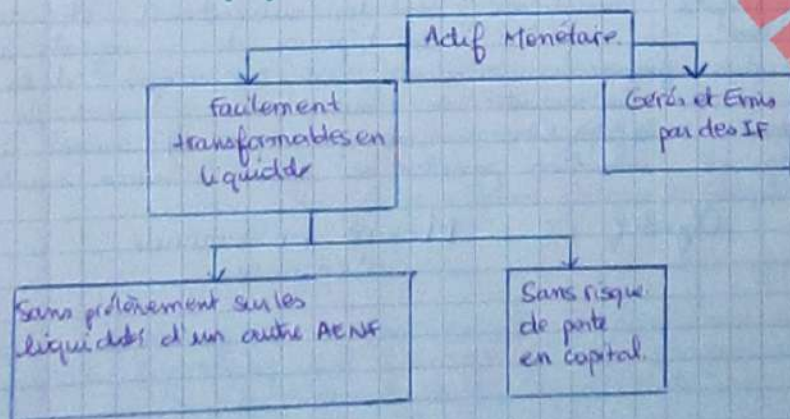 Actif Monétaire.
Facilement
transformables en
liquidité
Gérés et Emis
par des IF
Sans prélèvement sur les
liquidités d'un autre AENF
Sans risque
de perte
en capital.